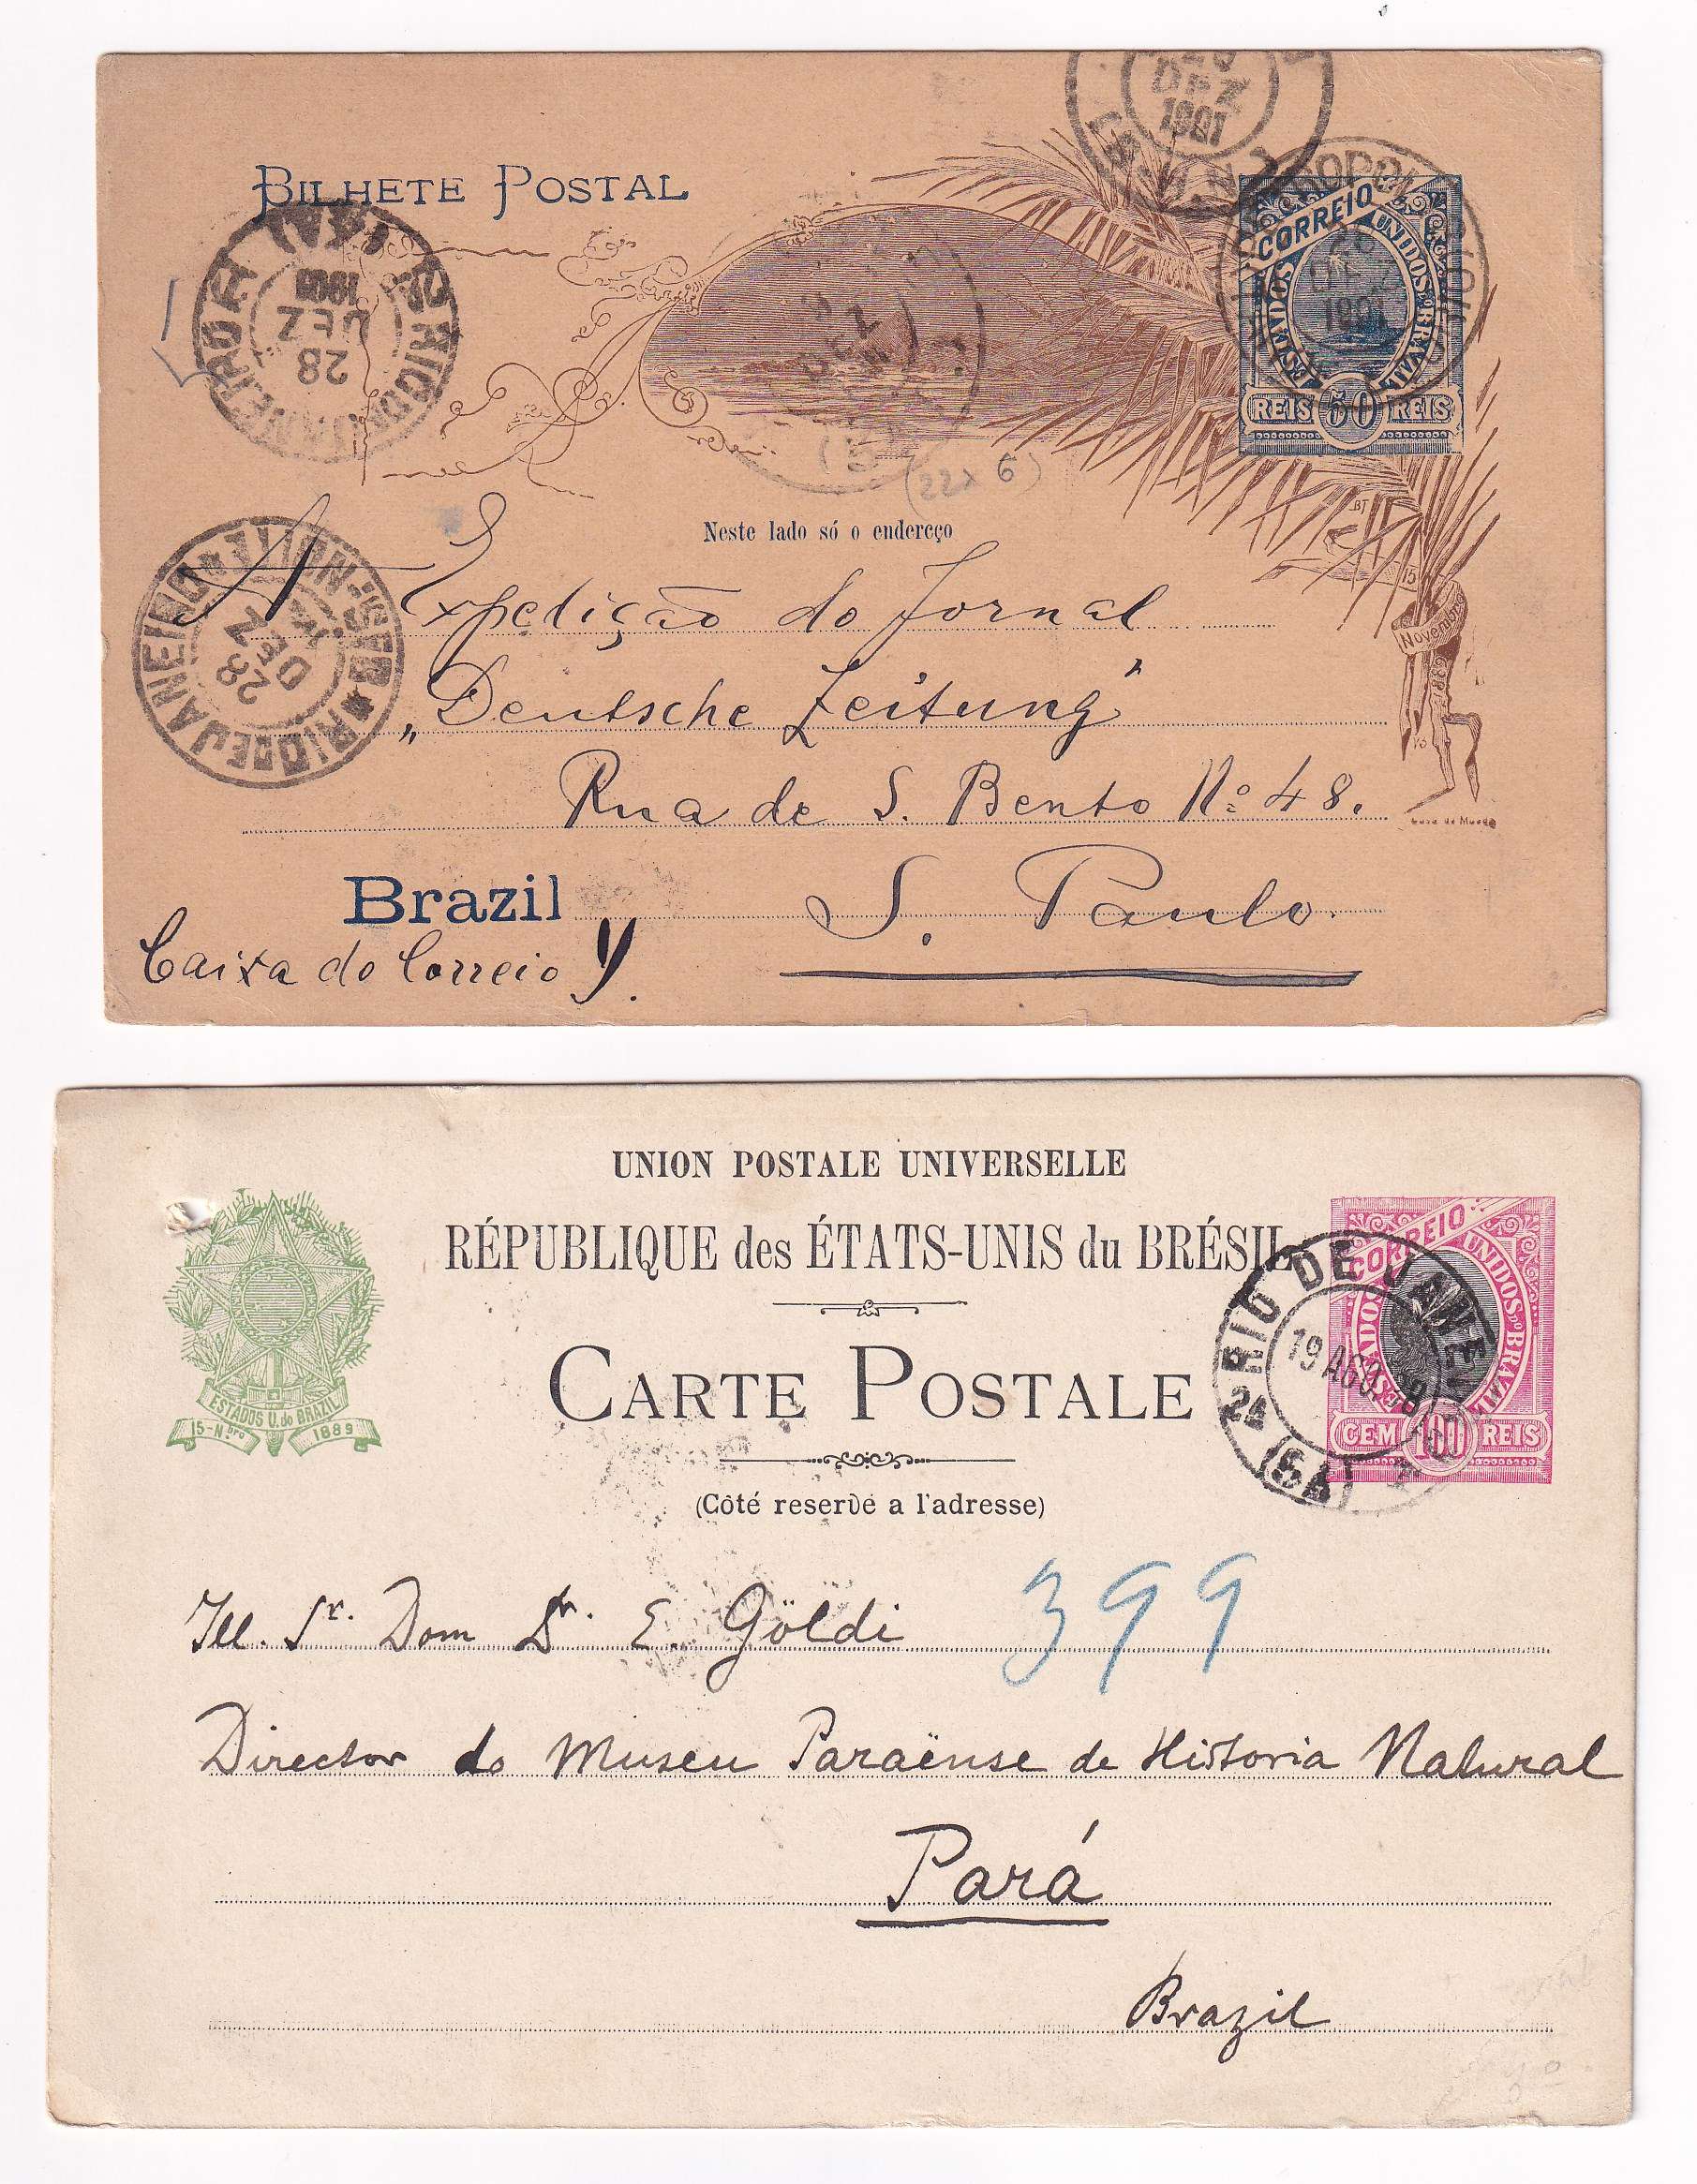 DEZ
1901
BILHETE POSTAL
CORREIO
ESTADOS UNIDOS DO BRAZIL
1901
REIS 50 REIS
RIO DE JANEIRO
28
DEZ
1901
(22x6)
Neste lado só o endereço
BT
15
Novembro
1889
RIO DE JANEIRO
28
DEZ
A Expedição do Jornal
„Deutsche Zeitung"
Rua de S. Bento No 48.
Brazil
S. Paulo.
Caixa do Correio Y.
Casa da Moeda
UNION POSTALE UNIVERSELLE
RÉPUBLIQUE des ÉTATS-UNIS du BRÉSIL
CORREIO
ESTADOS UNIDOS DO BRAZIL
CEM 100 REIS
CARTE POSTALE
RIO DE JANEIRO
19 AGO
ESTADOS U. do BRAZIL
15-Nbro 1889
(Côté reservé a l'adresse)
399
Ill. Sr. Dom Dr. E. Göldi
Director do Museu Paraënse de Historia Natural
Pará
Brazil